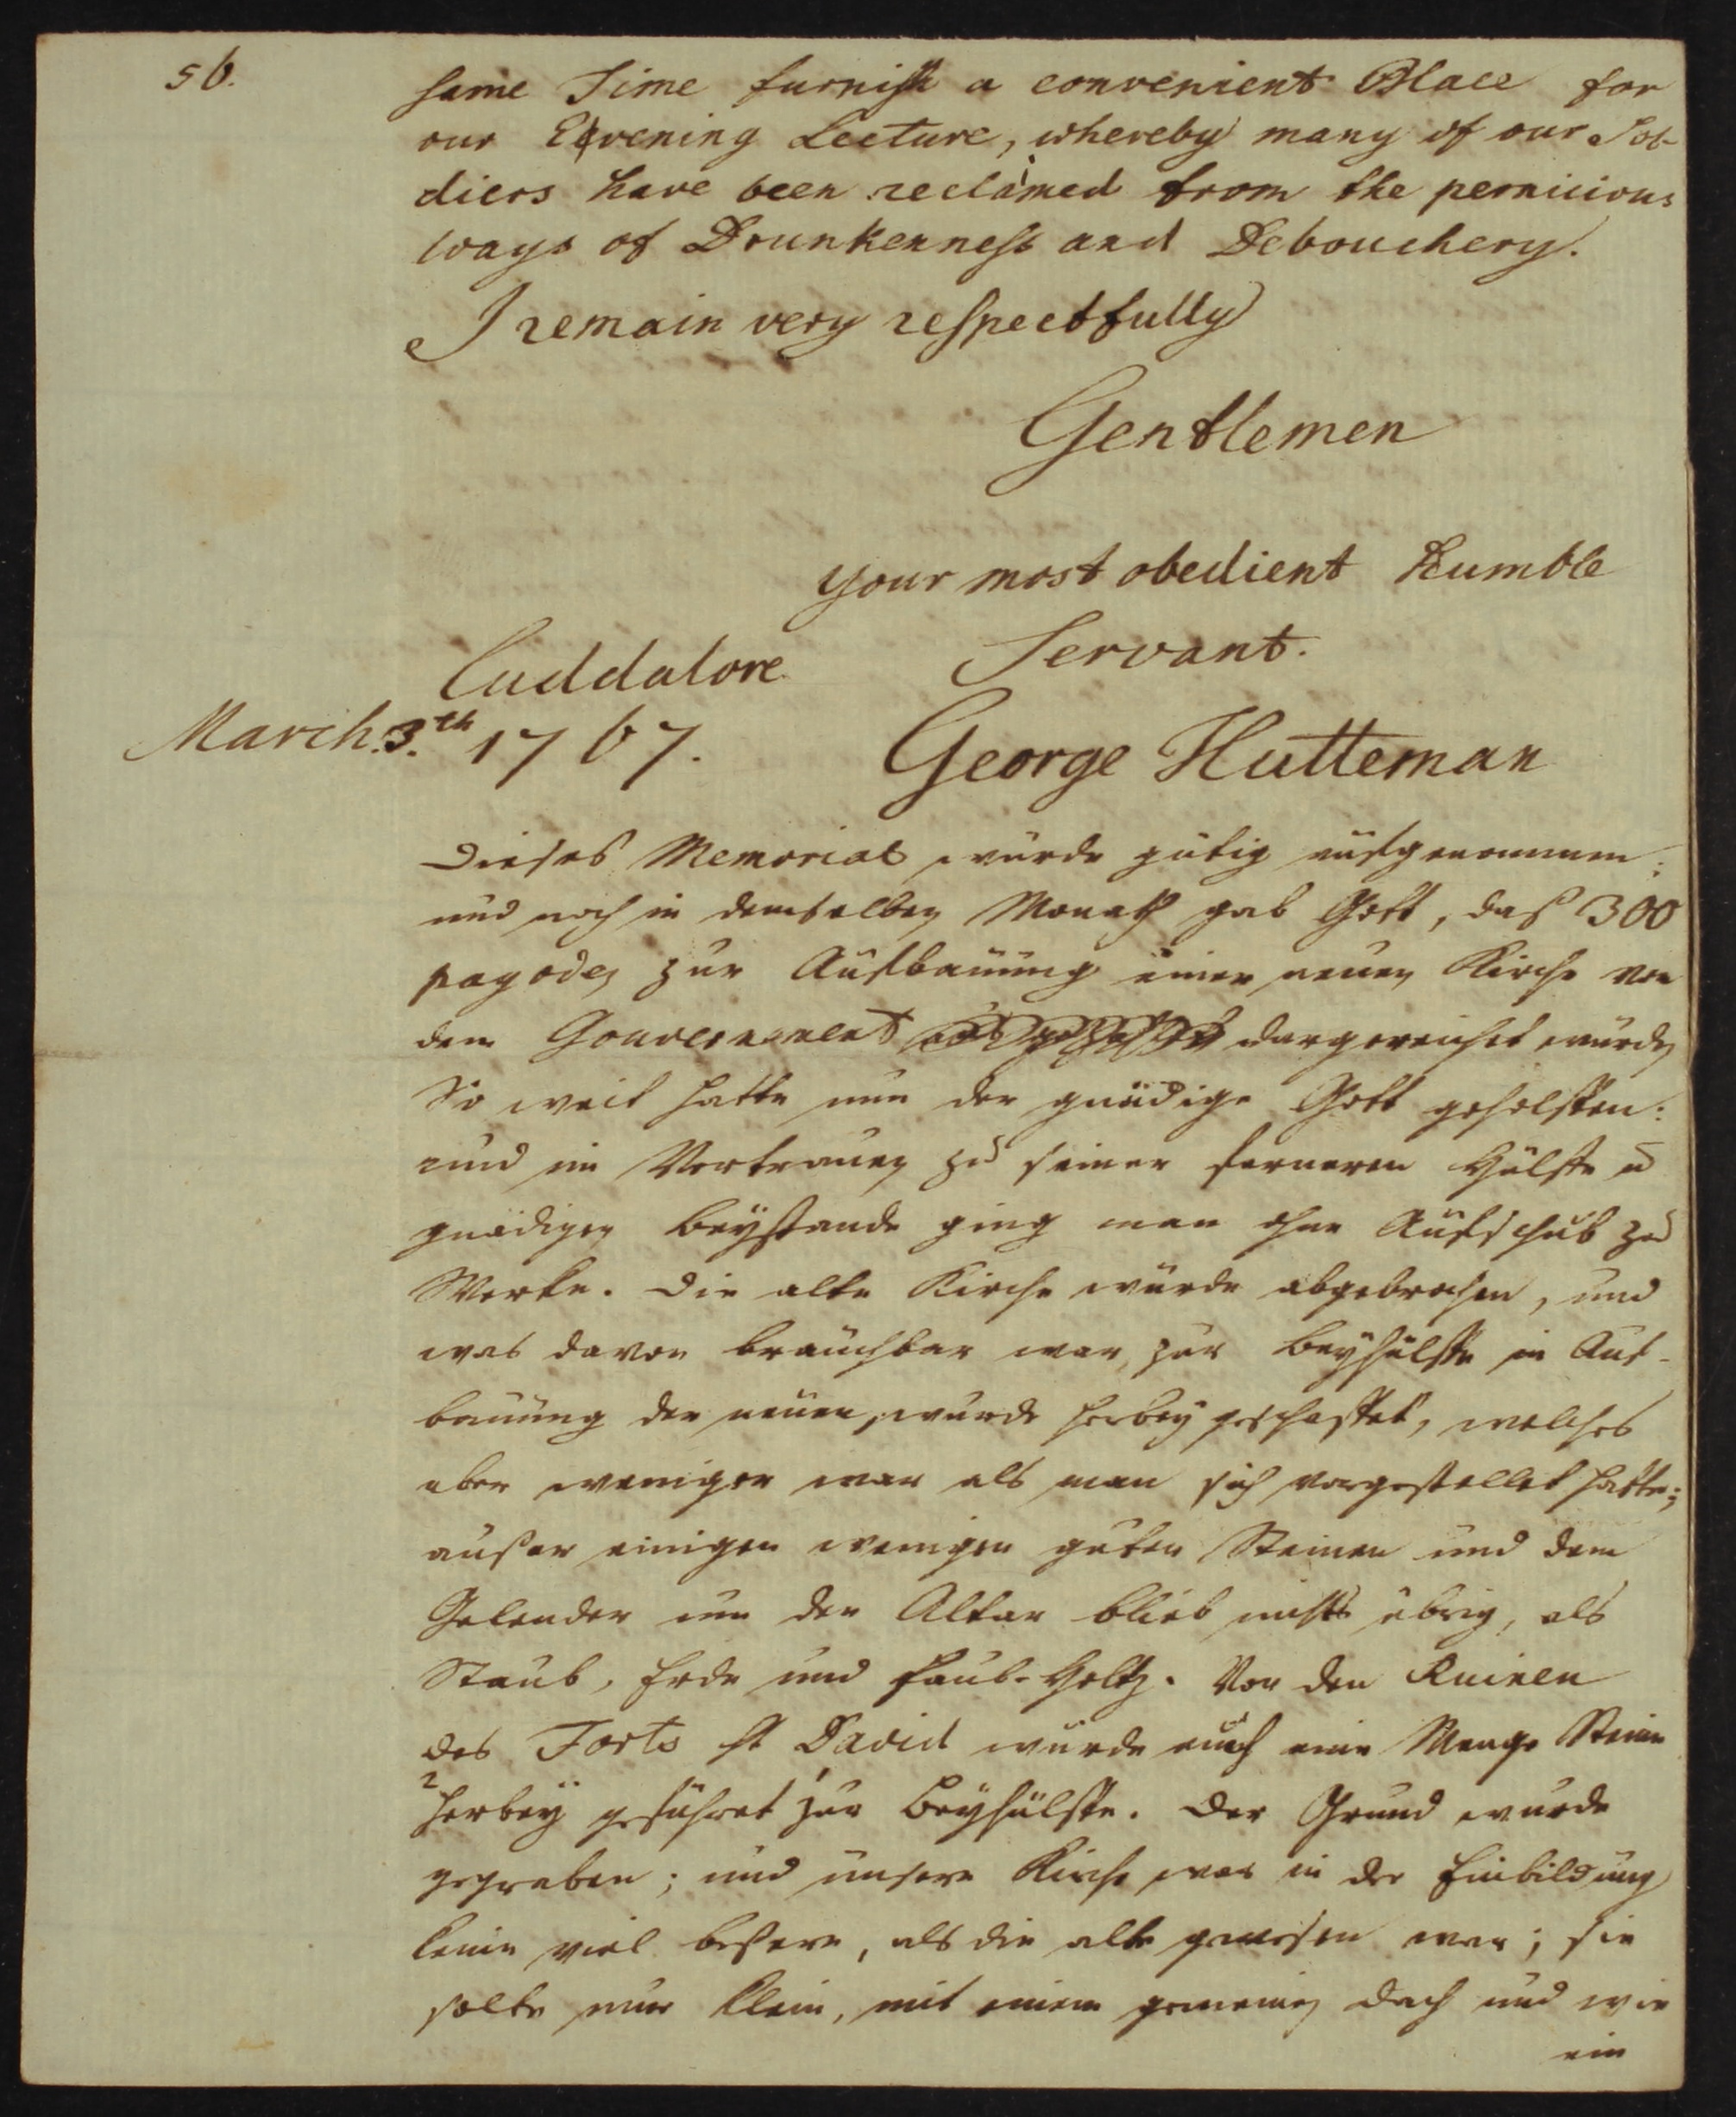 56.
same Time furnish a convenient Place for
our Evening Lecture, whereby many of our Sol-
diers have been reclaimed from the pernicious
ways of Drunkenness and Debouchery.
I remain very respectfully
Gentlemen
your most obedient humble
Servant.
Cuddalore
March. 3.th 1767.
George Hutteman
Dieses Memorial wurde gütig aufgenommen;
und noch in demselben Monath gab Gott, daß 300
pagoden zur Aufbauung einer neuen Kirche von
dem Gouvernement dargereichet wurden
So weit hatte nun der gnädige Gott geholffen:
und im Vertrauen zu seiner ferneren Hülffe u
gnädigen Beystande ging man ohne Aufschub zu
Werke. Die alte Kirche wurde abgebrochen, und
was davon brauchbar war, zur Beyhülffe in Auf-
bauung der neuen, wurde herbey geschaffet, welches
aber weniger war als man sich vorgestellet hatte;
außer einigen wenigen guten Steinen und dem
Gelender um den Altar blieb nichts übrig, als
Staub, Erde und faul-Holtz. Von den Ruinen
des Forts St David wurde auch eine Menge Steine
herbey geführet zur Beyhülffe. Der Grund wurde
gegraben; und unsere Kirche war in der Einbildung
keine viel bessere, als die alte gewesen war; sie
solte nur klein, mit einem gemeinen Dach und wie
ein